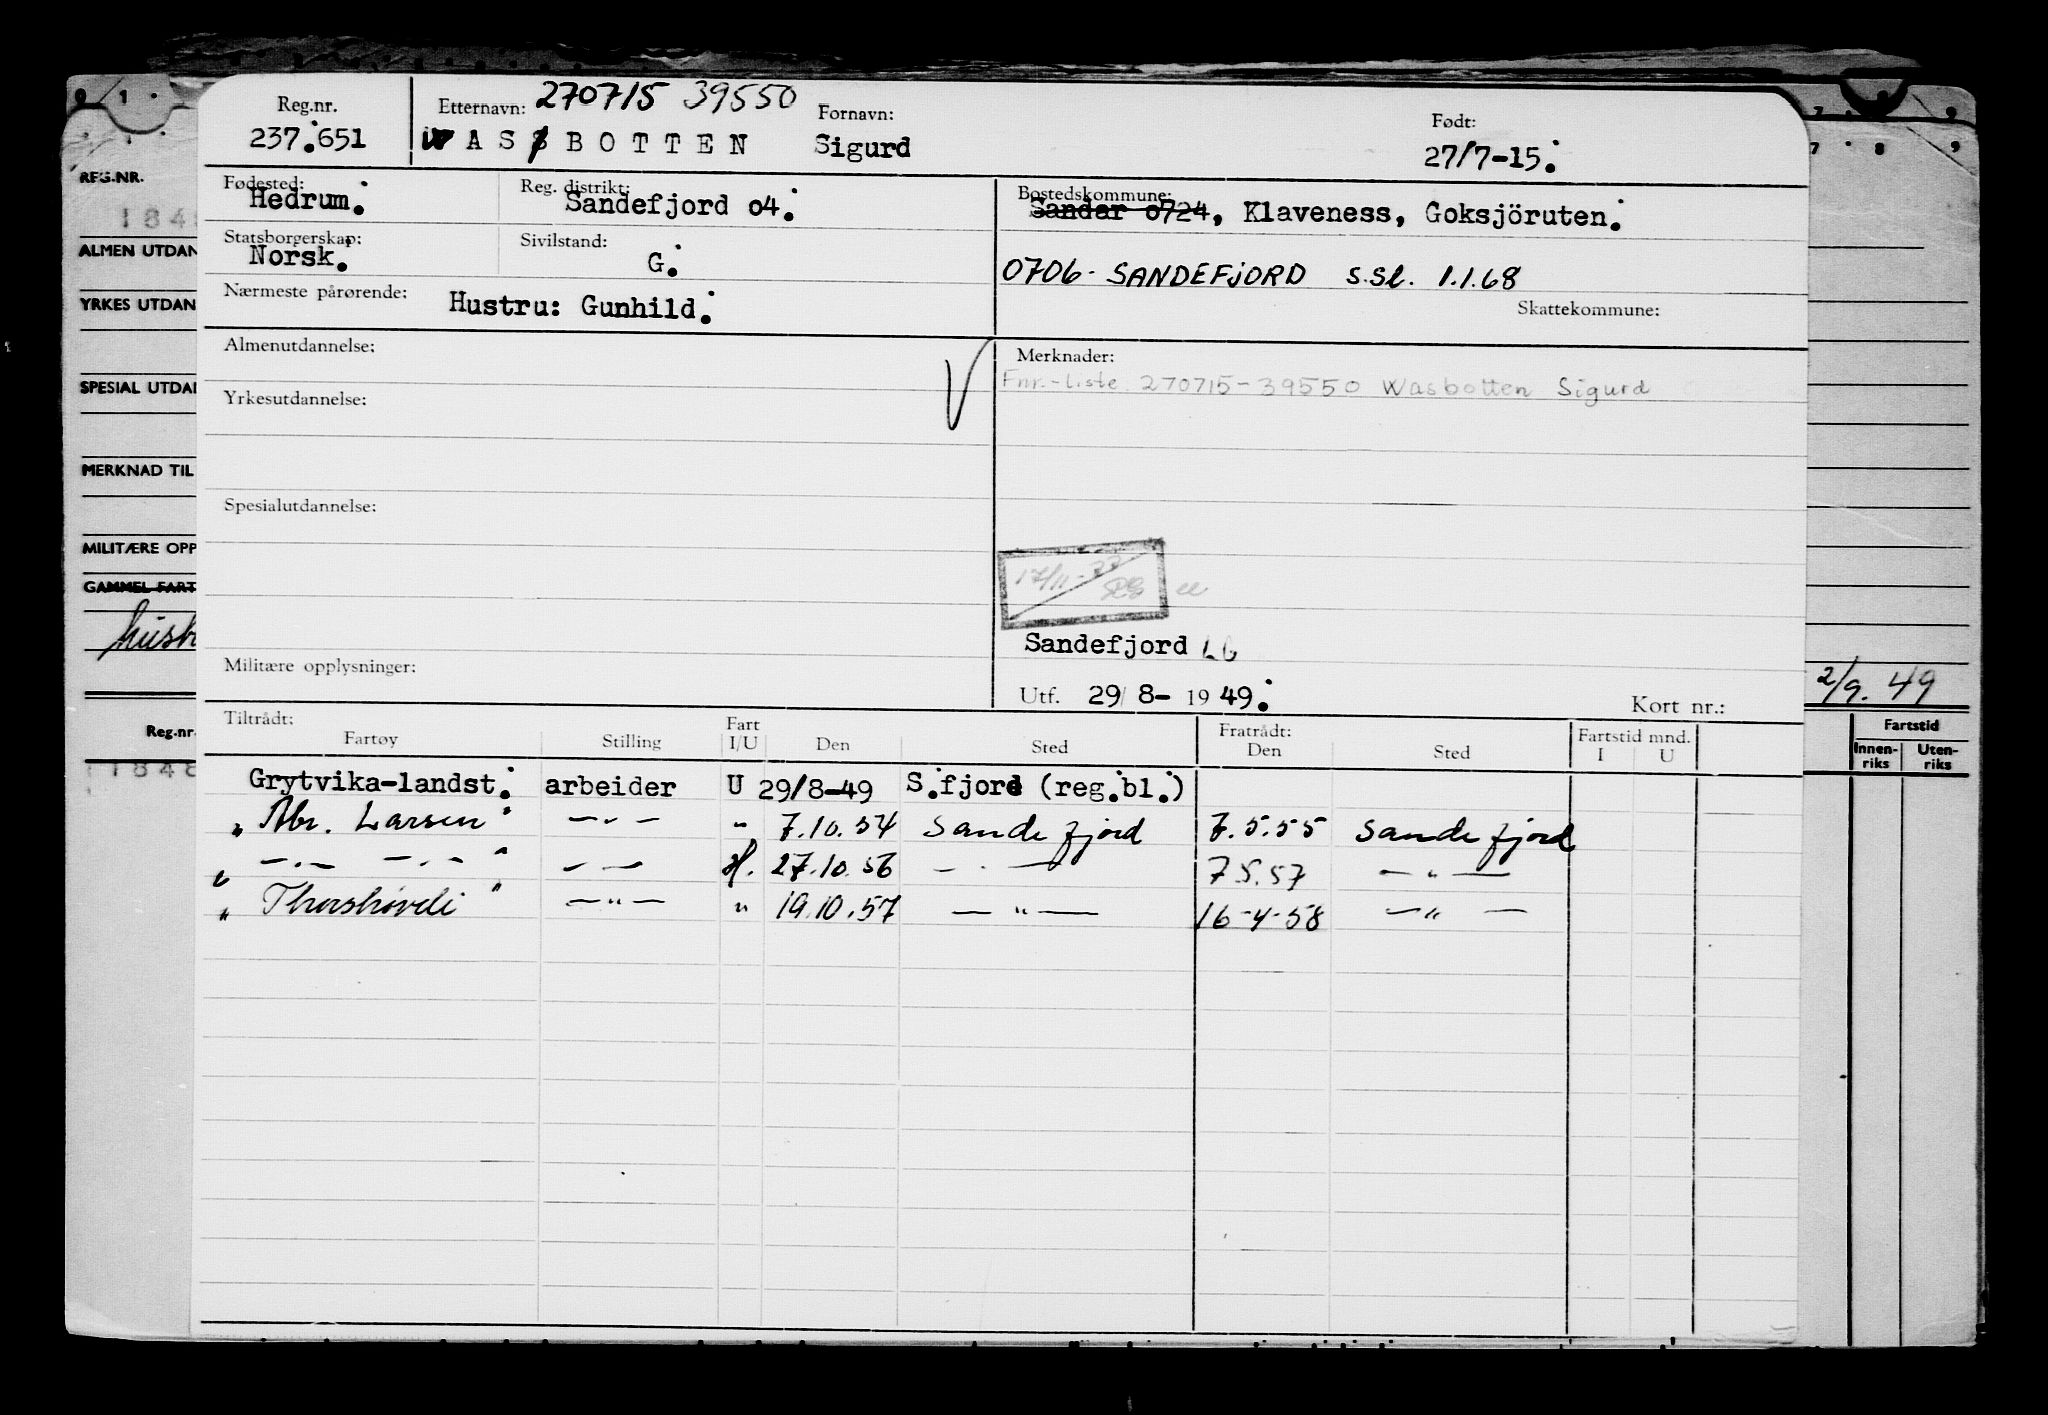 Reg.nr. Etternavn: 270715 39550 Fornavn: Født:
237.651 WASBOTTEN Sigurd 27/7-15.
Fødested: Hedrum. Reg. distrikt: Sandefjord o4. Bostedskommune: Sandar o724, Klaveness, Goksjöruten.
Statsborgerskap: Norsk. Sivilstand: G.
0706- SANDEFJORD s.sl. 1.1.68
Nærmeste pårørende: Hustru: Gunhild. Skattekommune:
Almenutdannelse: Merknader:
Fnr.-liste 270715-39550 Wasbotten Sigurd
Yrkesutdannelse:
Spesialutdannelse:
17/11-
Sandefjord
Militære opplysninger:
Utf. 29/8- 1949. Kort nr.:
Tiltrådt: Fart Fratrådt: Fartstid mnd.
Fartøy Stilling I/U Den Sted Den Sted I U
Grytvika-landst. arbeider U 29/8-49 S.fjord (reg.bl.)
" Abr. Larsen " —"— " 7.10.54 Sandefjord 7.5.55 Sandefjord
" —"— —"— " —"— H. 27.10.56 —"— 7.5.57 —"—
" Thorshövdi " —"— " 19.10.57 —"— 16-4-58 —"—
REG.NR.
184
ALMEN UTDAN
YRKES UTDAN
SPESIAL UTDAN
MERKNAD TIL
MILITÆRE OPP
GAMMEL FART
Reg.nr.
1848
2/9. 49
Fartstid
Innenriks Utenriks